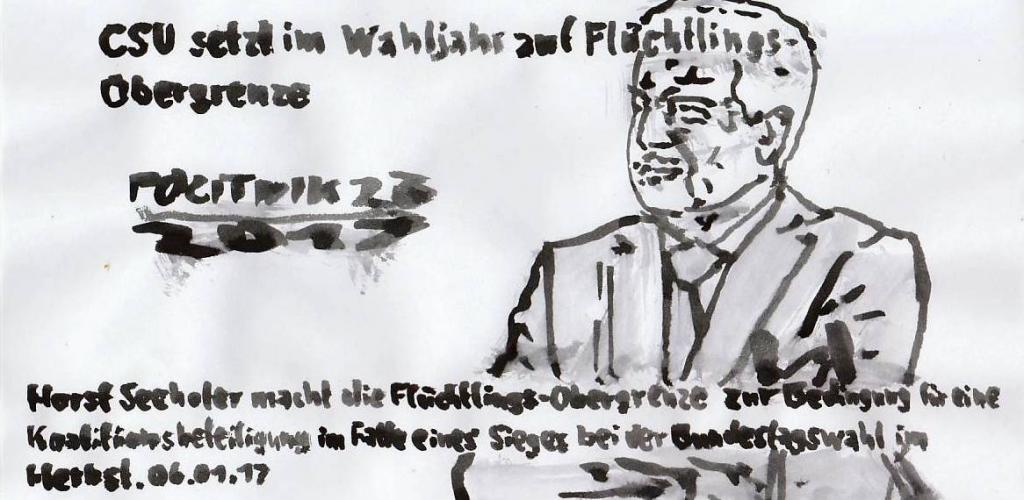 CSU setzt im Wahljahr auf Flüchtlings-
Obergrenze
POLITWIK 23
2017
Horst Seehofer macht die Flüchtlings-Obergrenze zur Bedingung für eine
Koalitionsbeteiligung im Falle eines Sieges bei der Bundestagswahl im
Herbst. 06.01.17